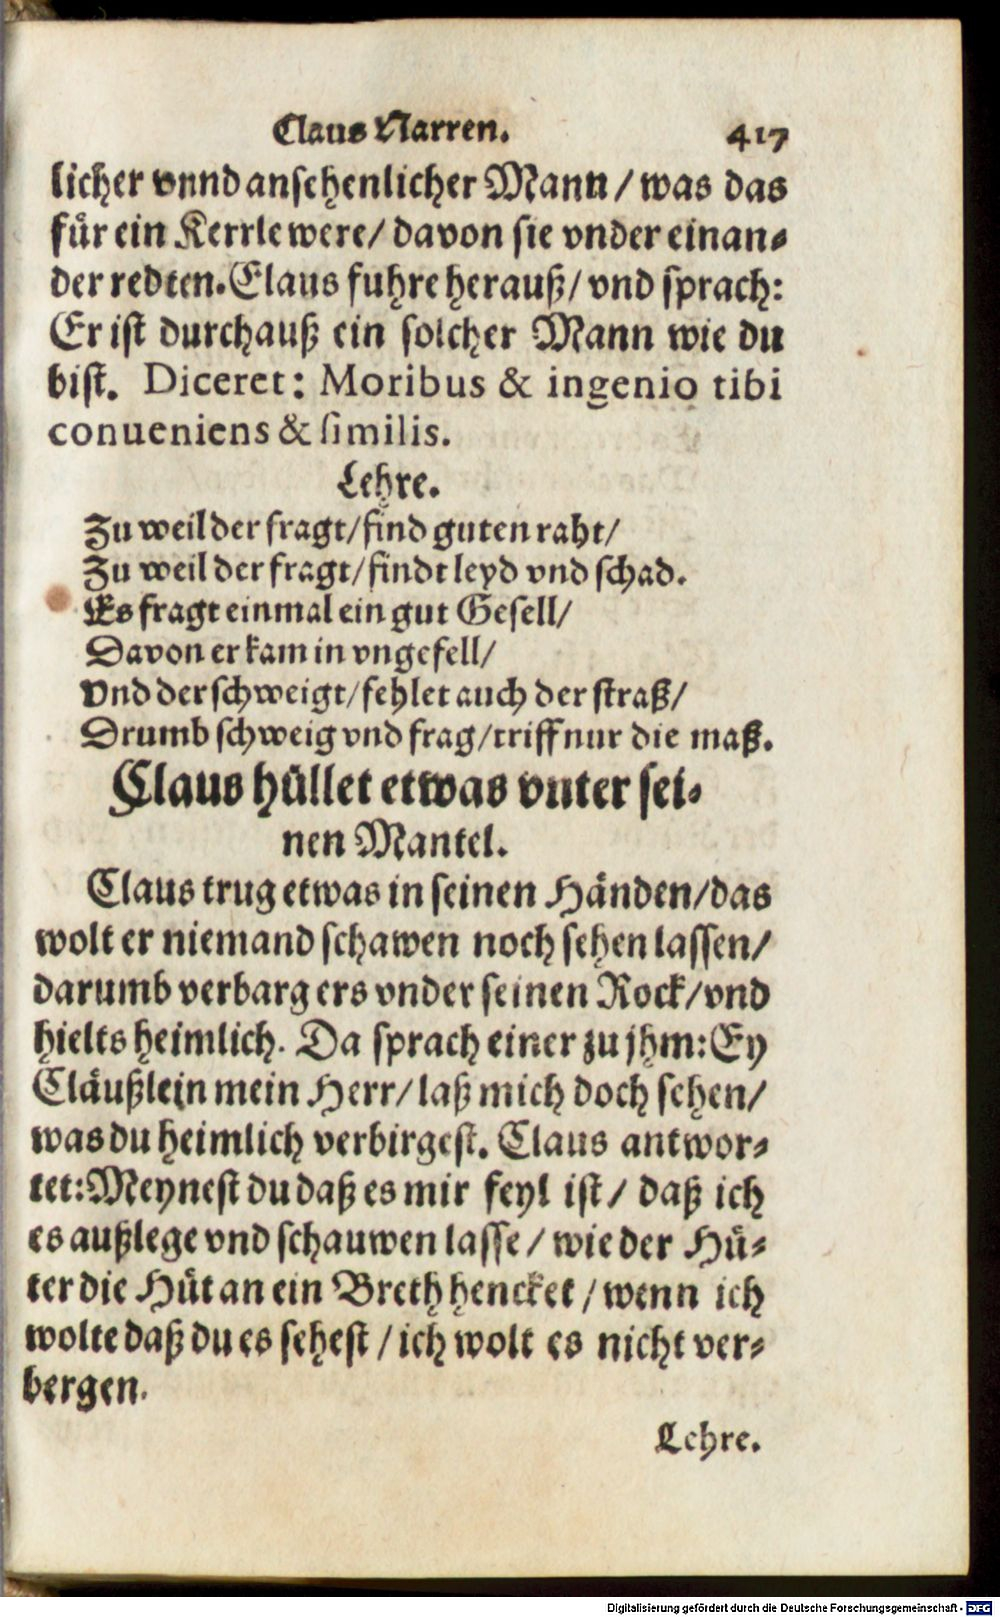 Claus Narren. 417
licher vnnd ansehenlicher Mann / was das
für ein Kerrle were / davon sie vnder einan-
der redten. Claus fuhre herauß / vnd sprach:
Er ist durchauß ein solcher Mann wie du
bist. Diceret: Moribus & ingenio tibi
conueniens & similis.
Lehre.
Zu weil der fragt / find guten raht /
Zu weil der fragt / findt leyd vnd schad.
Es fragt einmal ein gut Gesell /
Davon er kam in vngefell /
Vnd der schweigt / fehlet auch der straß /
Drumb schweig vnd frag / triff nur die maß.
Claus hüllet etwas vnter sei-
nen Mantel.
Claus trug etwas in seinen Händen / das
wolt er niemand schawen noch sehen lassen /
darumb verbarg ers vnder seinen Rock / vnd
hielts heimlich. Da sprach einer zu jhm: Ey
Cläußlein mein Herr / laß mich doch sehen /
was du heimlich verbirgest. Claus antwor-
tet: Meynest du daß es mir feyl ist / daß ich
es außlege vnd schauwen lasse / wie der Hü-
ter die Hüt an ein Breth hencket / wenn ich
wolte daß du es sehest / ich wolt es nicht ver-
bergen.
Lehre.
Digitalisierung gefördert durch die Deutsche Forschungsgemeinschaft - DFG